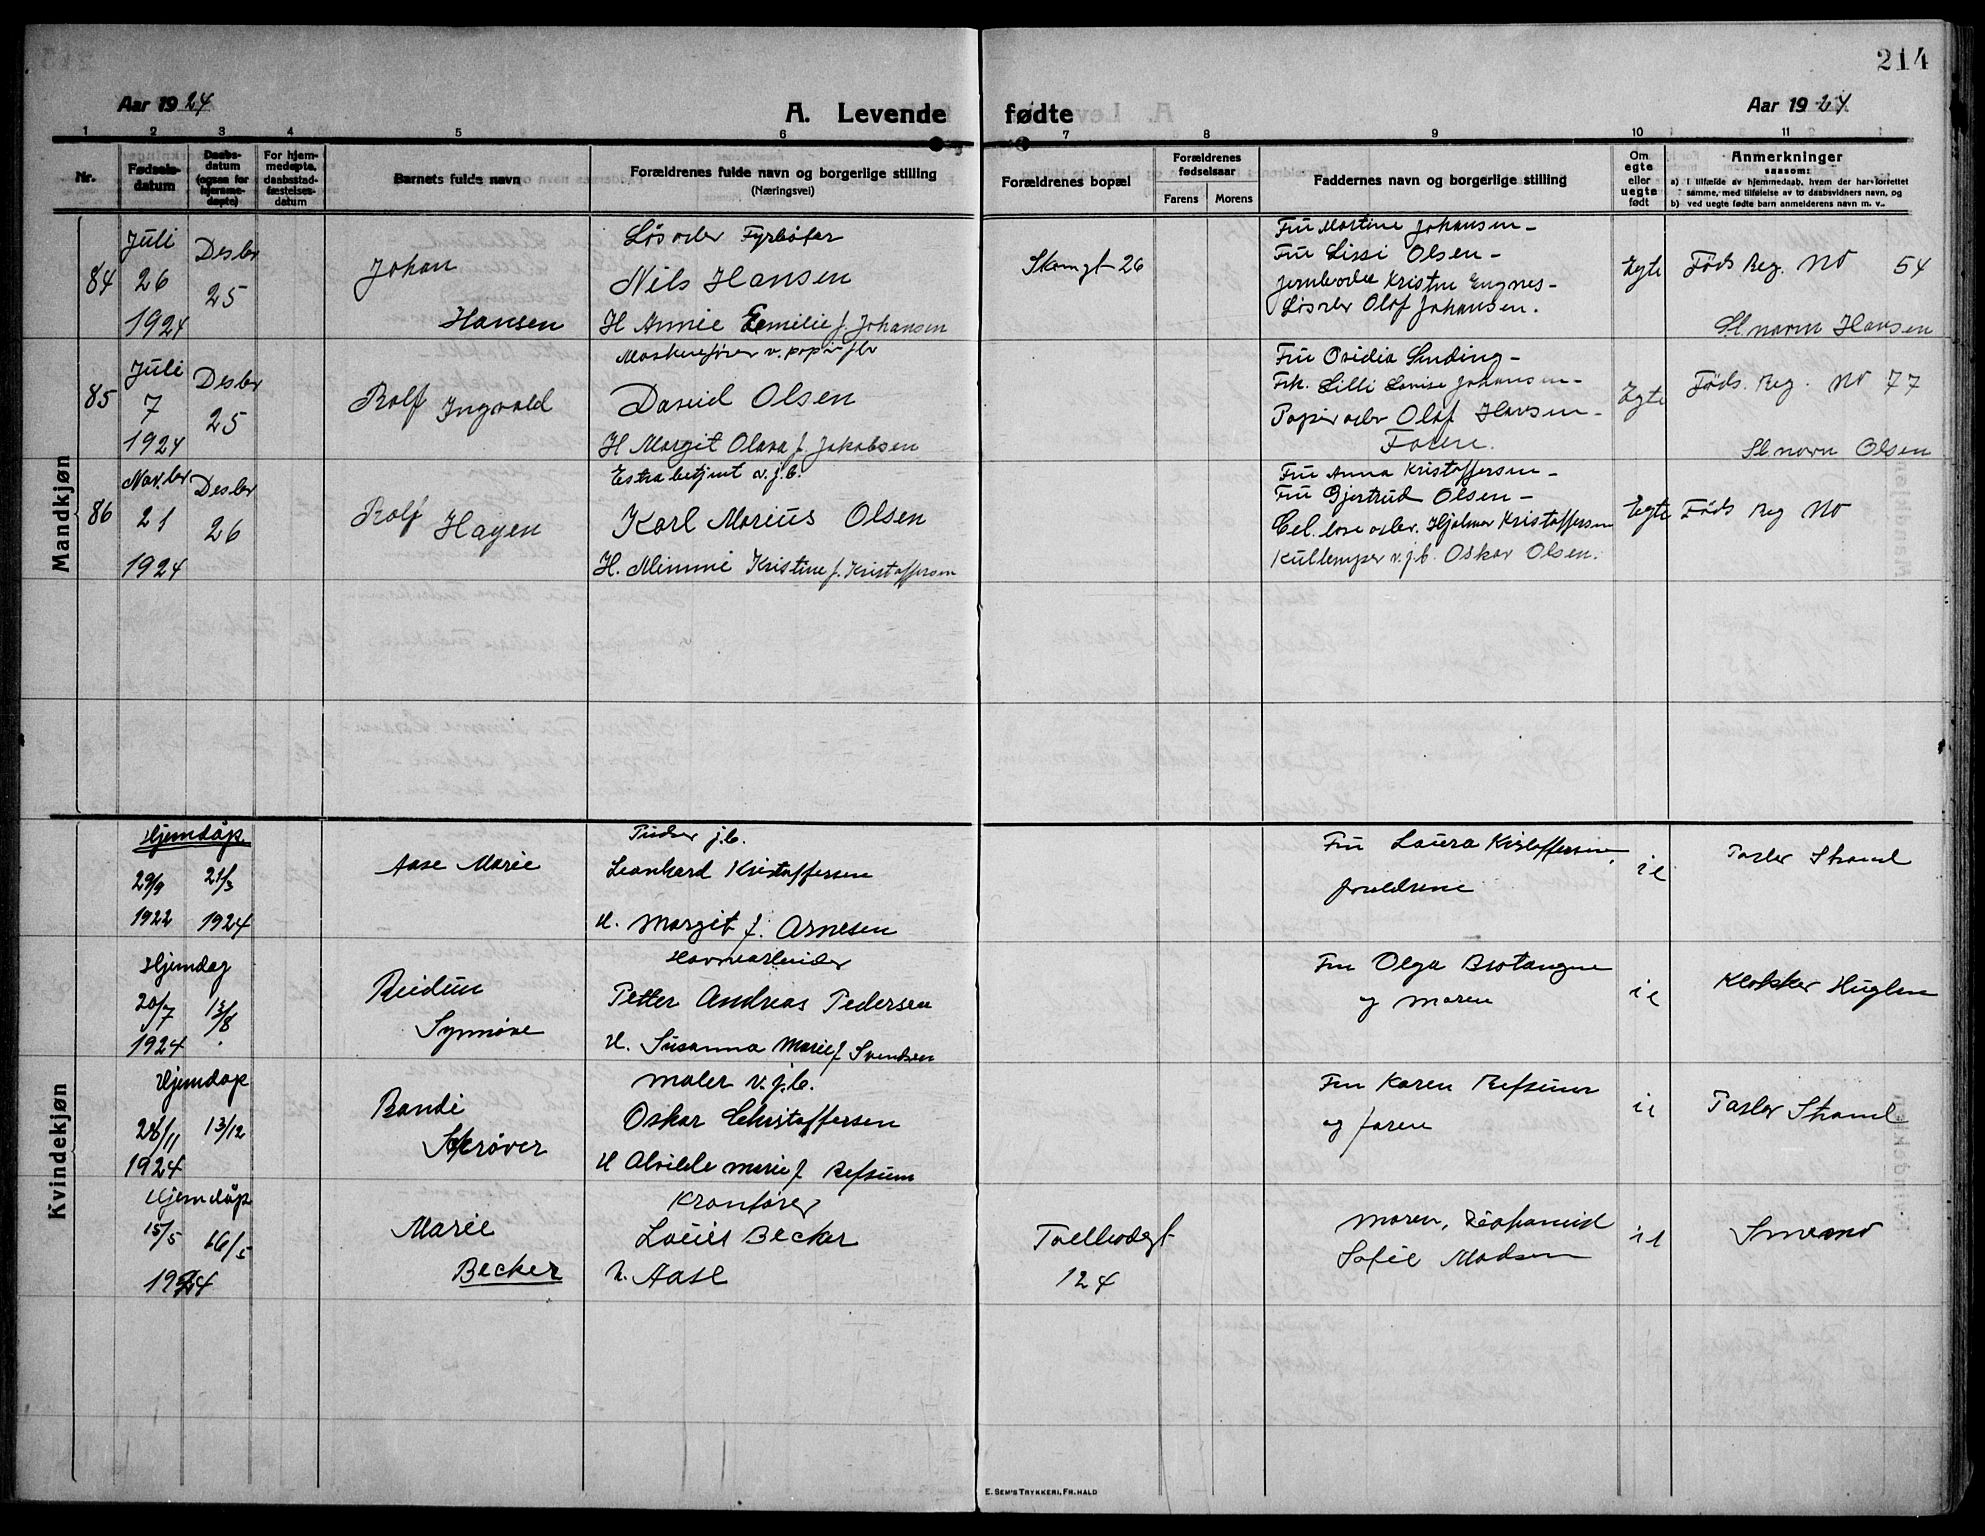 214
Aar 1924
A. Levende fødte
Aar 1924
1 2 3 4 5 6 7 8 9 10 11
Nr.
Fødsels-
datum
Daabs-
datum
(ogsaa for
hjemme-
døpte)
For hjem-
medøpte,
daabsstad-
fæstelses-
datum
Barnets fulde navn
Forældrenes fulde navn og borgerlige stilling
(Næringsvei)
Forældrenes bopæl
Forældrenes
fødselsaar
Farens Morens
Faddernes navn og borgerlige stilling
Om
egte
eller
uegte
født
Anmerkninger
saasom:
a) I tilfælde av hjemmedaab, hvem der har forrettet
samme, med tilføielse av to daabsvidners navn, og
b) ved uegte fødte barn anmelderens navn m. v.
Mandkjøn
84
Juli
26
1924
Desbr
25
Johan
Hansen
Løsarb Fyrbøter
Nils Hansen
H Annie Emilie f. Johansen
Skomgt 26
Fru Martine Johansen –
Fru Lissi Olsen –
Kristine Engnes –
Løsarb Olaf Johansen.
Egte
Føds Reg. No 54
Sl navn Hansen
85
Juli
7
1924
Desbr
25
Rolf Ingvald
Maskinfører v. papirfbr
David Olsen
H Margit Olava f. Jakobsen
Fru Ovidia Sinding –
Frk. Lilli Lovise Johansen –
Papirarb Olaf Hansen –
Faren.
Egte
Føds. Reg. No 77
Sl navn Olsen
86
Nov.br
21
1924
Desbr
26
Rolf Hagen
Extrabetjent v. j.b.
Karl Marius Olsen
H. Mimmi Kristine f. Kristoffersen
Fru Anna Kristoffersen –
Fru Gjertrud Olsen –
Cel.lose arb. Hjalmar Kristoffersen
Kullemper v. j.b. Oskar Olsen.
Egte
Føds Reg No
Kvindekjøn
Hjemdåp
29/9
1922
21/3
1924
Aase Marie
Pudser j.b.
Leonhard Kristoffersen
H. Margit f. Arnesen
Fru Laura Kristoffersen,
foreldrene
Paster Strand
Hjemdåp
20/7
1924
13/8
Reidun
Synnøve
Havnearbeider
Petter Andreas Pedersen
H. Susanna Marie f Svendsen
Fru Olga Brotangne
og moren
Klokker Huglen
Hjemdåp
28/11
1924
13/12
Randi
Skrøver
Maler v. j.b.
Oskar Christoffersen
H Alvilde Marie f Refsum
Fru Karen Refsum
og faren
Paster Strand
Hjemdåp
15/5
1924
16/5
Marie
Becker
Kranfører
Louis Becker
h. Aase
Tollbodgt
124
Moren,
Sofie Madsen
E. Sem's Trykkeri, Fr.hald